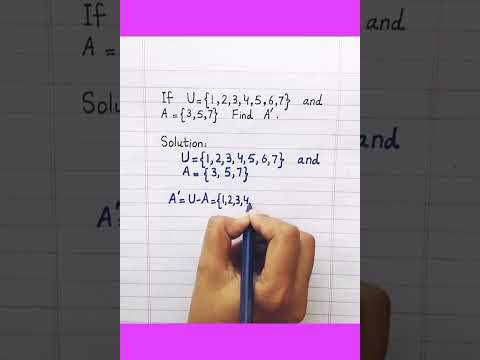 If U={1,2,3,4,5,6,7} and
A={3,5,7} Find A'.
Solution:
U={1,2,3,4,5,6,7} and
A={3, 5, 7}
A'=U-A={1,2,3,4,